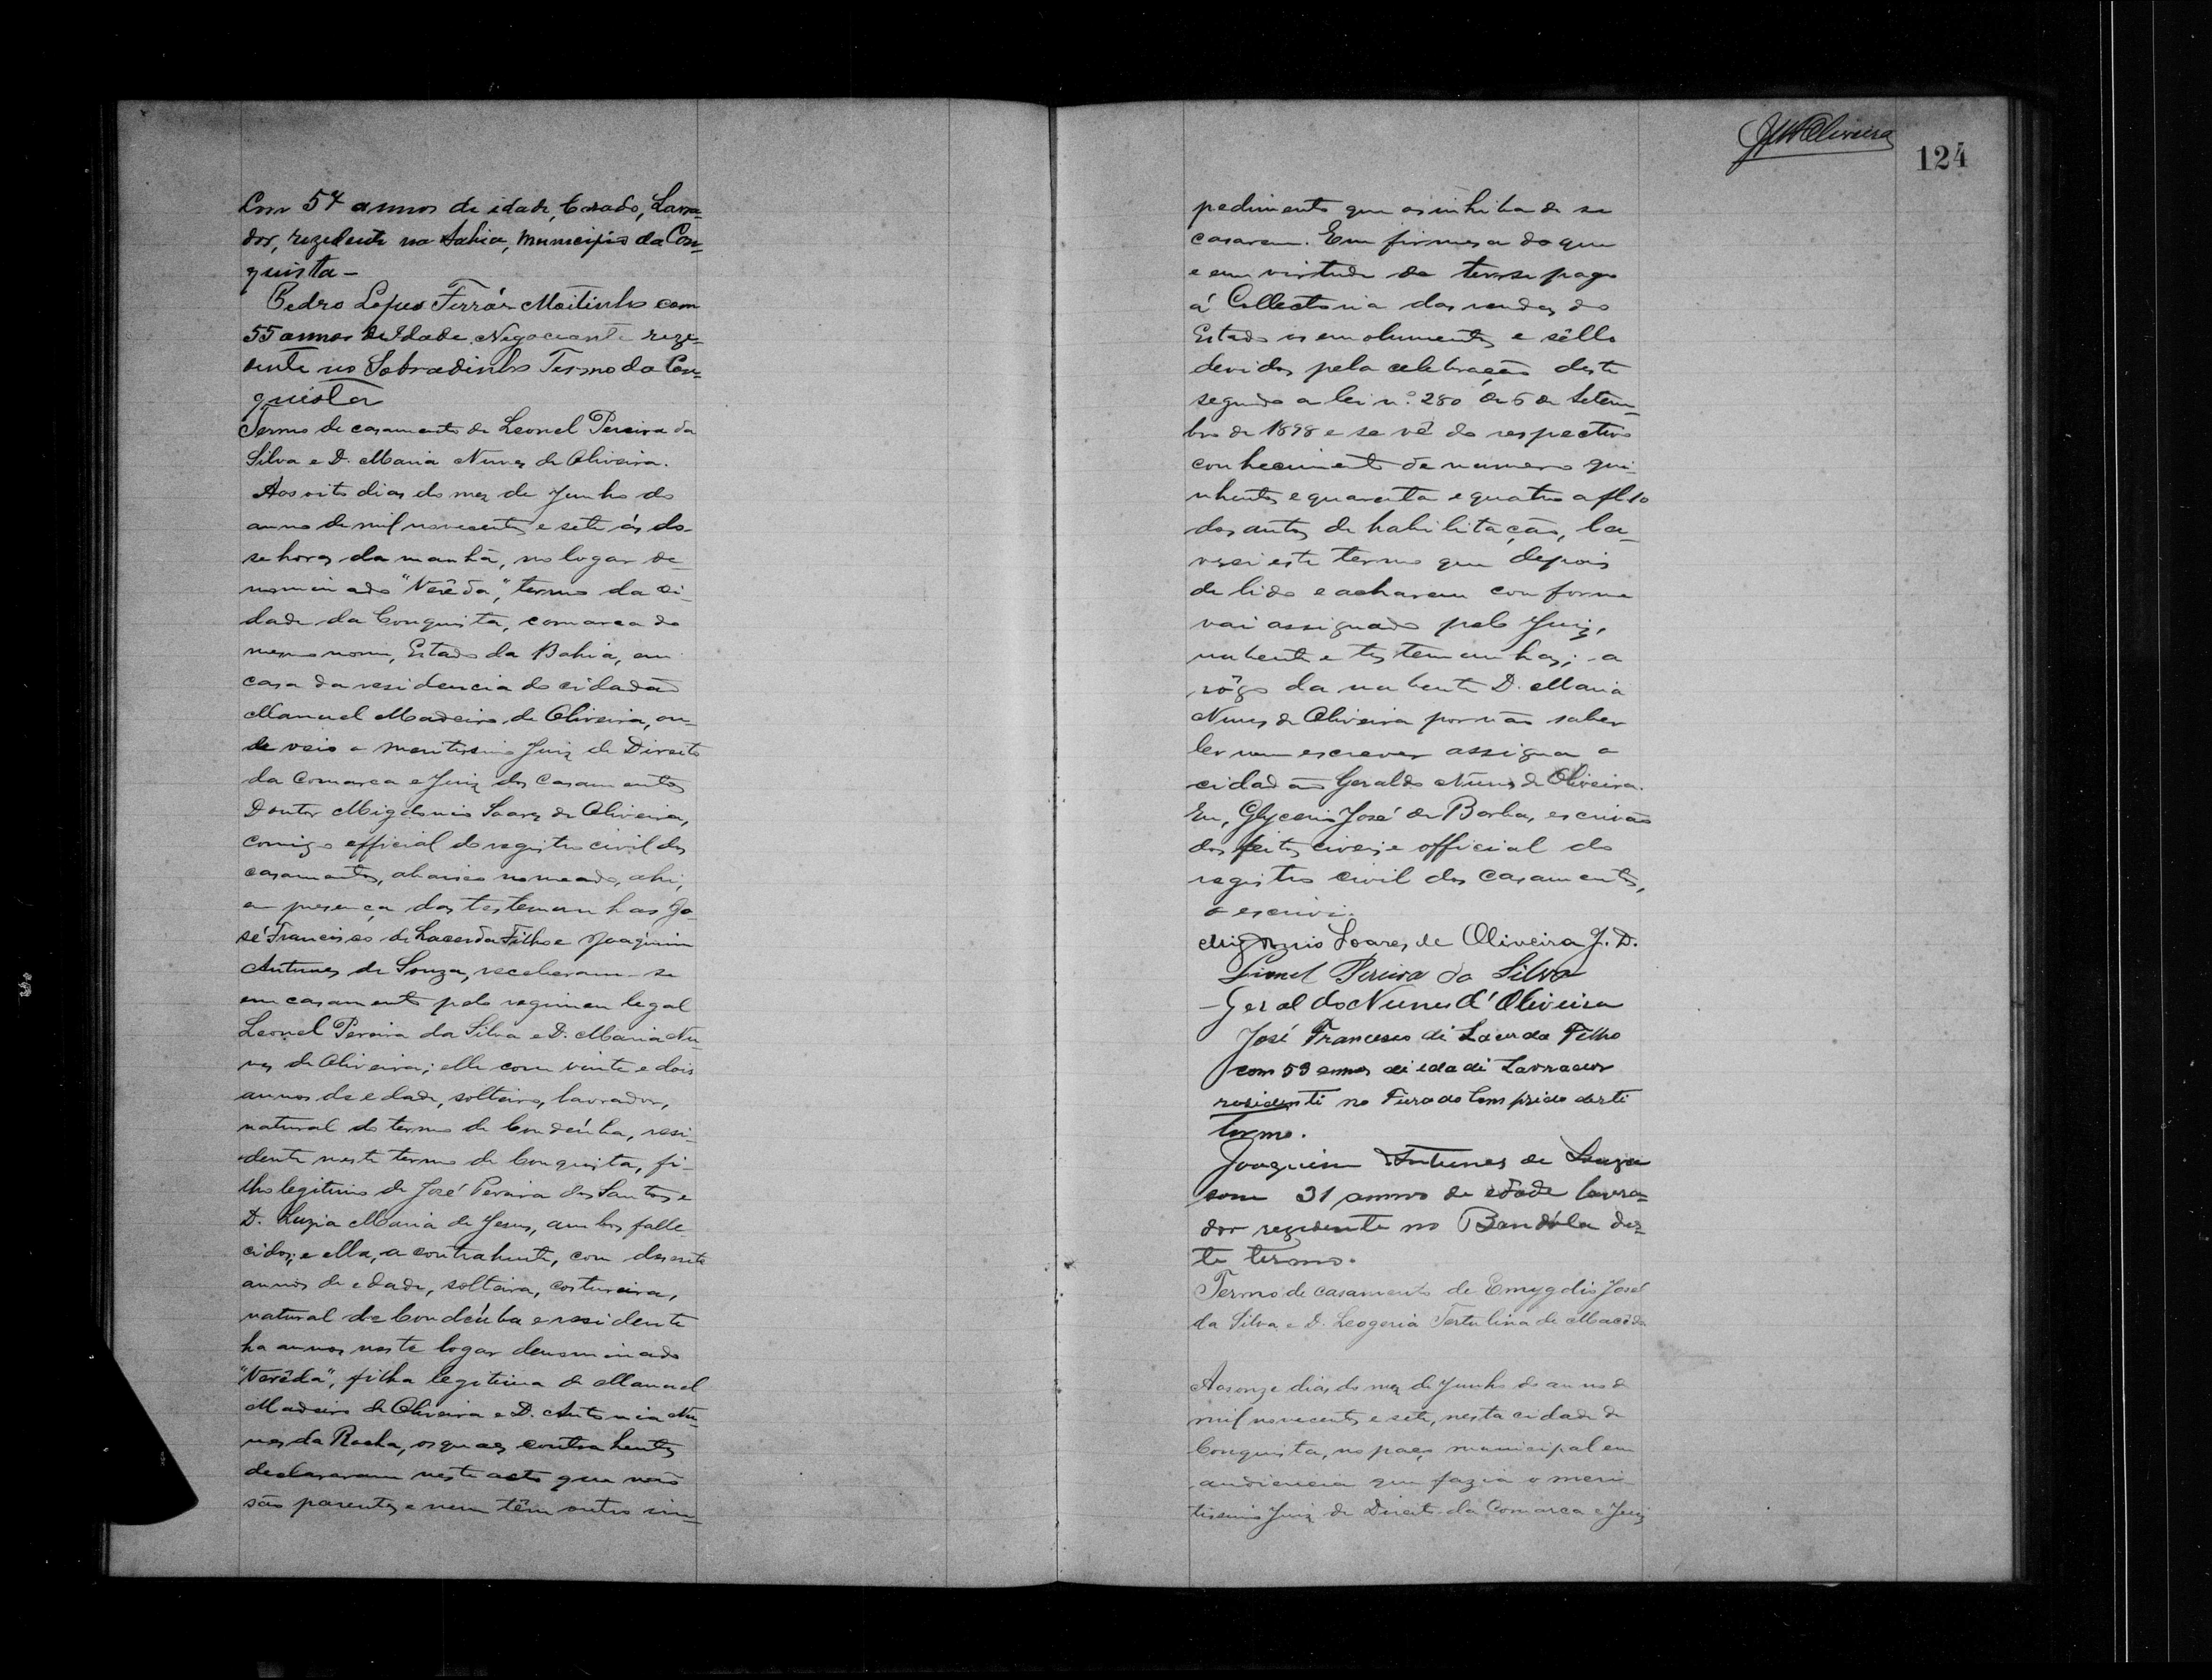 Com 57 annos de idade, Casado, Lavra-
dor, rezidente na Bahia, Municipio da Con-
quista -
Pedro Lopes Ferrás Moitinho com
55 annos de Idade Negociante reze-
dente no Sobradinho Termo da Con-
quista
Termo de casamento de Leonel Pereira da
Silva e D. Maria Nunes de Oliveira.
Aos oito dias do mez de Junho do
anno de mil novecentos e sete ás do-
se horas da manhã, no logar de-
nominado "Verêda", termo da ci-
dade da Conquista, comarca do
mesmo nome, Estado da Bahia, em
casa da residencia do cidadão
Manuel Madeira de Oliveira, on-
de veio o meritissimo Juiz de Direito
da Comarca e Juiz dos Casamentos
Doutor Migdonio Soares de Oliveira,
comigo official do registro civil dos
casamentos, abaixo nomeado, ahi,
em presença das testemunhas Jo-
sé Francisco de Lacerda Filho e Joaquim
Antunes de Souza, receberam-se
em casamento pelo regimen legal
Leonel Pereira da Silva e D. Maria Nu-
nes de Oliveira; elle com vinte e dois
annos de edade, solteiro, lavrador,
natural do termo de Condeúba, resi-
dente neste termo de Conquista, fi-
lho legitimo de José Pereira dos Santos e
D. Luzia Maria de Jesus, ambos falle-
cidos; e ella, a contrahente, com desesete
annos de edade, solteira, costureira,
natural de Condeúba e residente
ha annos neste logar denominado
"Verêda", filha legitima de Manuel
Madeira de Oliveira e D. Antonia Nu-
nes da Rocha, os quaes contrahentes
declararam neste acto que não
são parentes e nem têm outro im-
124
pedimento que os inhiba de se
casarem. Em firmesa do que
e em virtude de ter-se pago
á Collectoria das rendas do
Estado os emolumentos e sêllo
devidos pela celebração deste
segundo a lei n.º 280 de 6 de Setem-
bro de 1898 e se vê do respectivo
conhecimento de numero qui-
nhentos e quarenta e quatro a fl 10
dos autos de habilitação, la-
vrei este termo que depois
de lido e acharem conforme
vai assignado pelo Juiz,
nubente e testemunhas; a
rôgo da nubente D. Maria
Nunes de Oliveira por não saber
ler nem escrever assigna o
cidadão Geraldo Nunes de Oliveira.
Eu, Glycerio José de Borba, escrivão
dos feitos civeis e official do
registro civil dos casamentos,
o escrevi.
Migdonio Soares de Oliveira J. D.
Lionel Pereira da Silva
Geraldo Nunes d'Oliveira
José Francisco di Lacerda Filho
com 53 annos di idadi Lavrador
residenti no Furado Comprido desti
termo.
Joaquim Antunes de Souza
com 31 annos de edade lavra-
dor rezidente no Bandóla des-
te termo.
Termo de casamento de Emygdio José
da Silva e D. Leogeria Tertulina de Macêdo
Aos onze dias do mez de Junho do anno de
mil novecentos e sete, nesta cidade de
Conquista, no paço municipal em
audiencia que fazia o meri-
tissimo Juiz de Direito da Comarca e Juiz